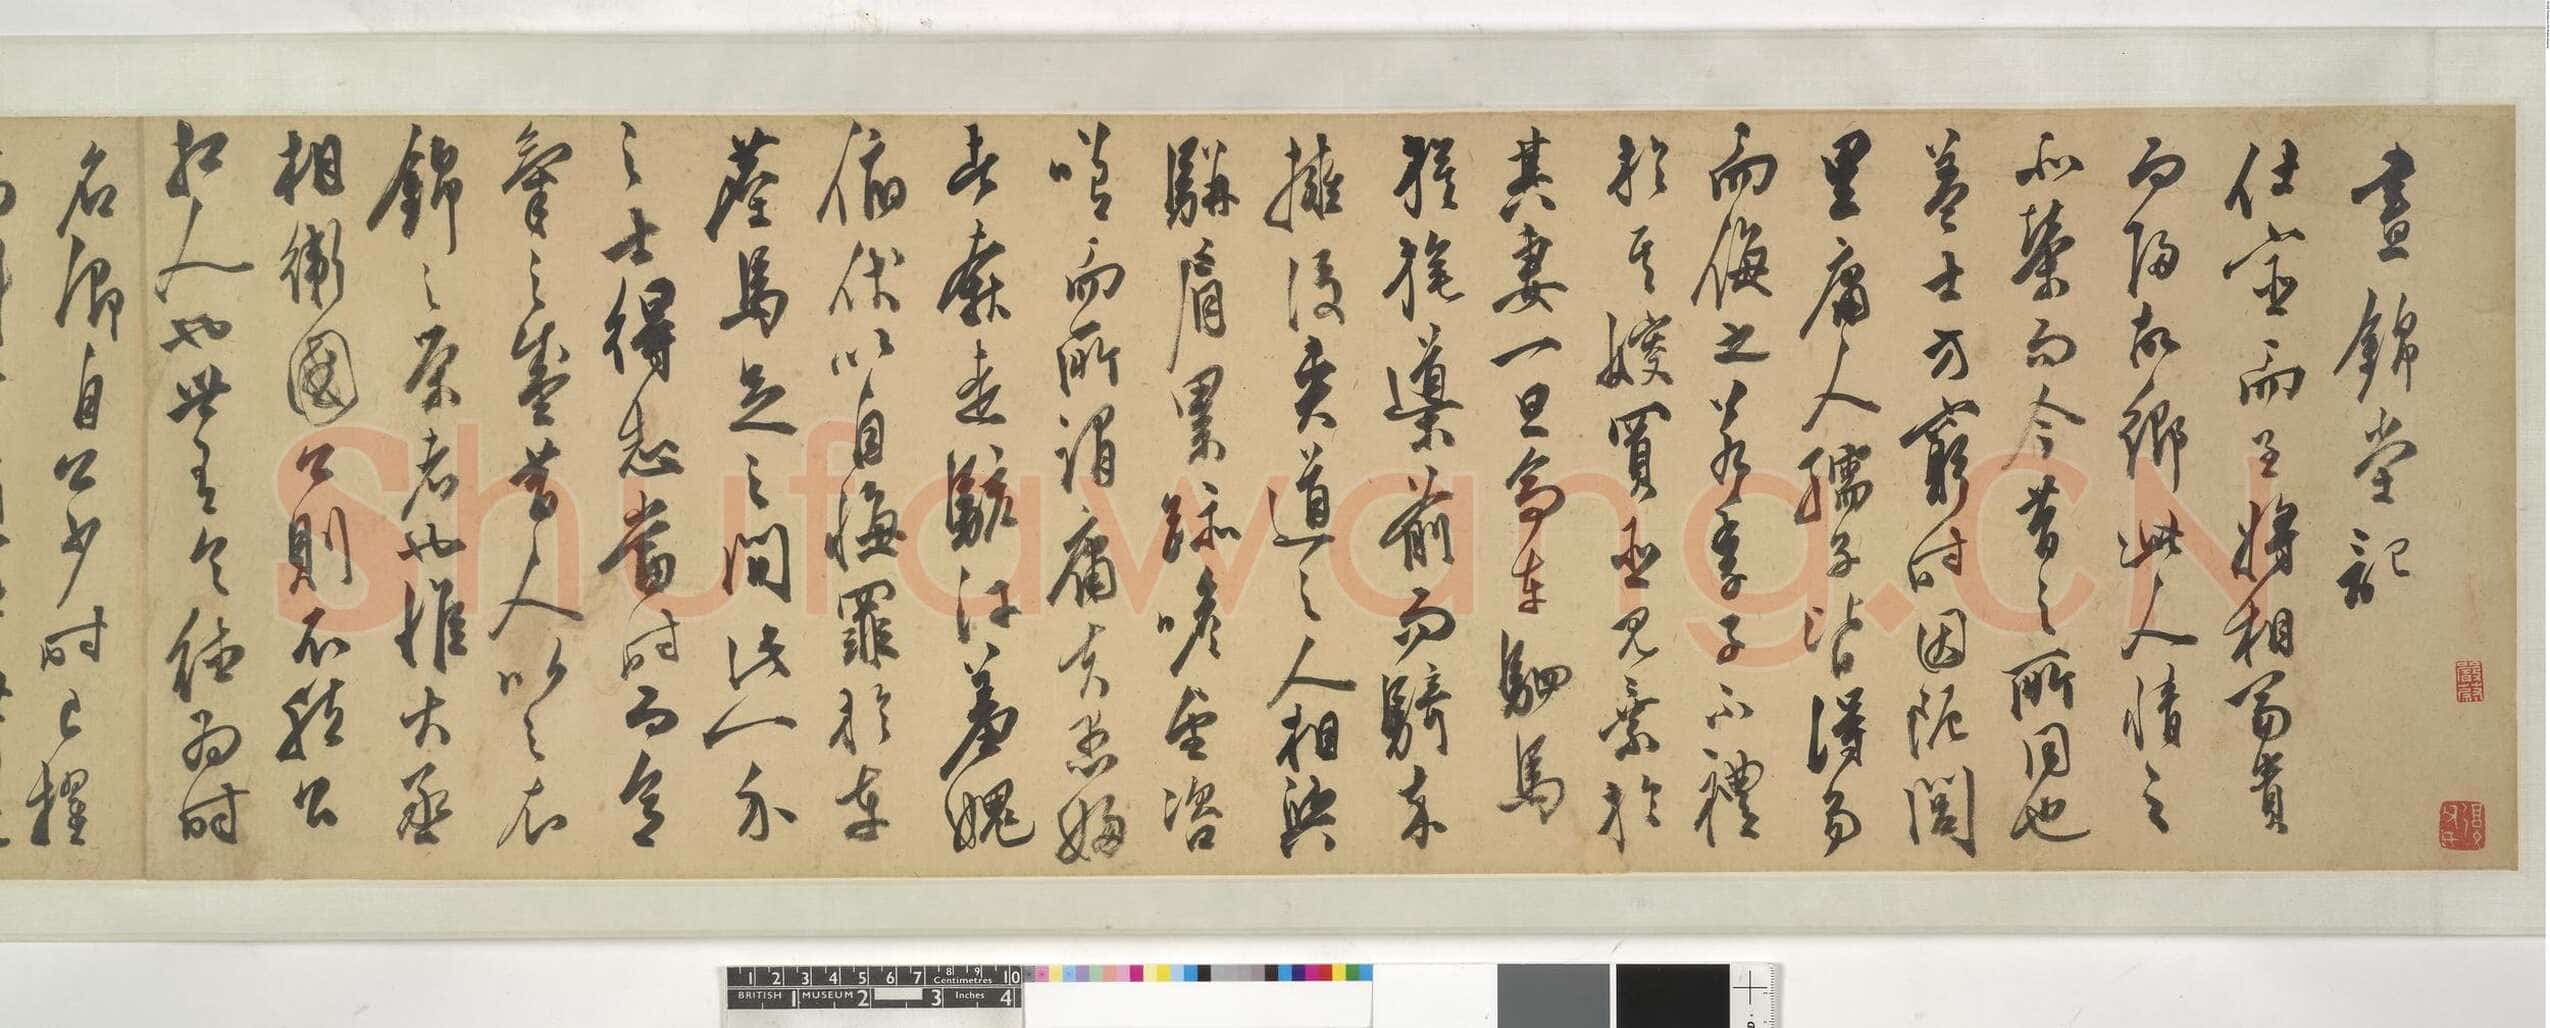 晝錦堂記
仕宦而至將相富貴
而歸故鄉此人情之
所榮而今昔之所同也
蓋士方窮時困阨閭
里庸人孺子皆得易
而侮之若季子不禮
於其嫂買臣見棄於
其妻一旦高車駟馬
旗旄導前而騎卒
擁後夾道之人相與
駢肩累跡瞻望咨
嗟而所謂庸夫愚婦
者奔走駭汗羞愧
俯伏以自悔罪於車
塵馬足之間此一介
之士得志當時而意
氣之盛昔人比之衣
錦之榮者也惟大丞
相衛國公則不然公
相人也世有令德為時
名卿自公少時已擢
Shufawang.CN
1 2 3 4 5 6 7 8 9 10
Centimetres
BRITISH 1 MUSEUM 2 3 Inches 4